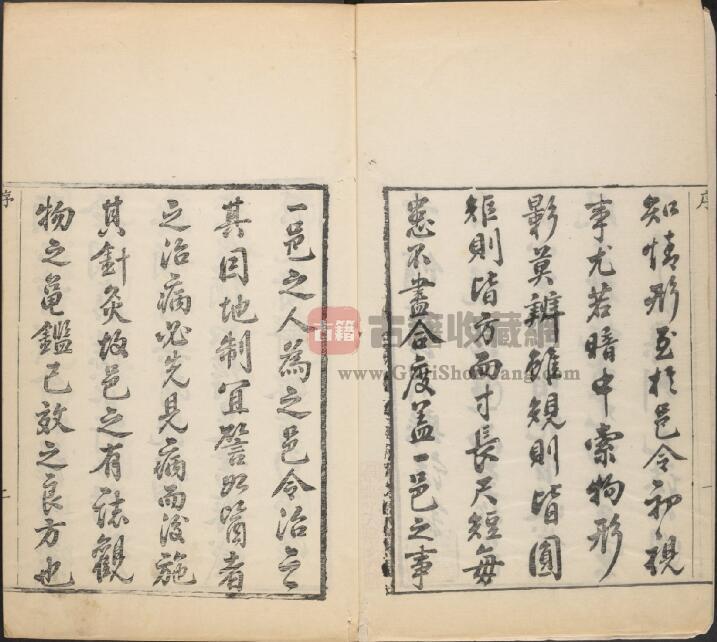 序
知情形至於邑令初視
事尤若暗中索物形
影莫辨雖規則皆圓
矩則皆方而寸長尺短每
患不盡合度蓋一邑之事
一邑之人為之邑令治之
其因地制宜譬如醫者
之治病必先見病而後施
其針灸故邑之有誌觀
物之龜鑑已效之良方也
序
二
古籍
古籍收藏網
www.GujiShouCang.com